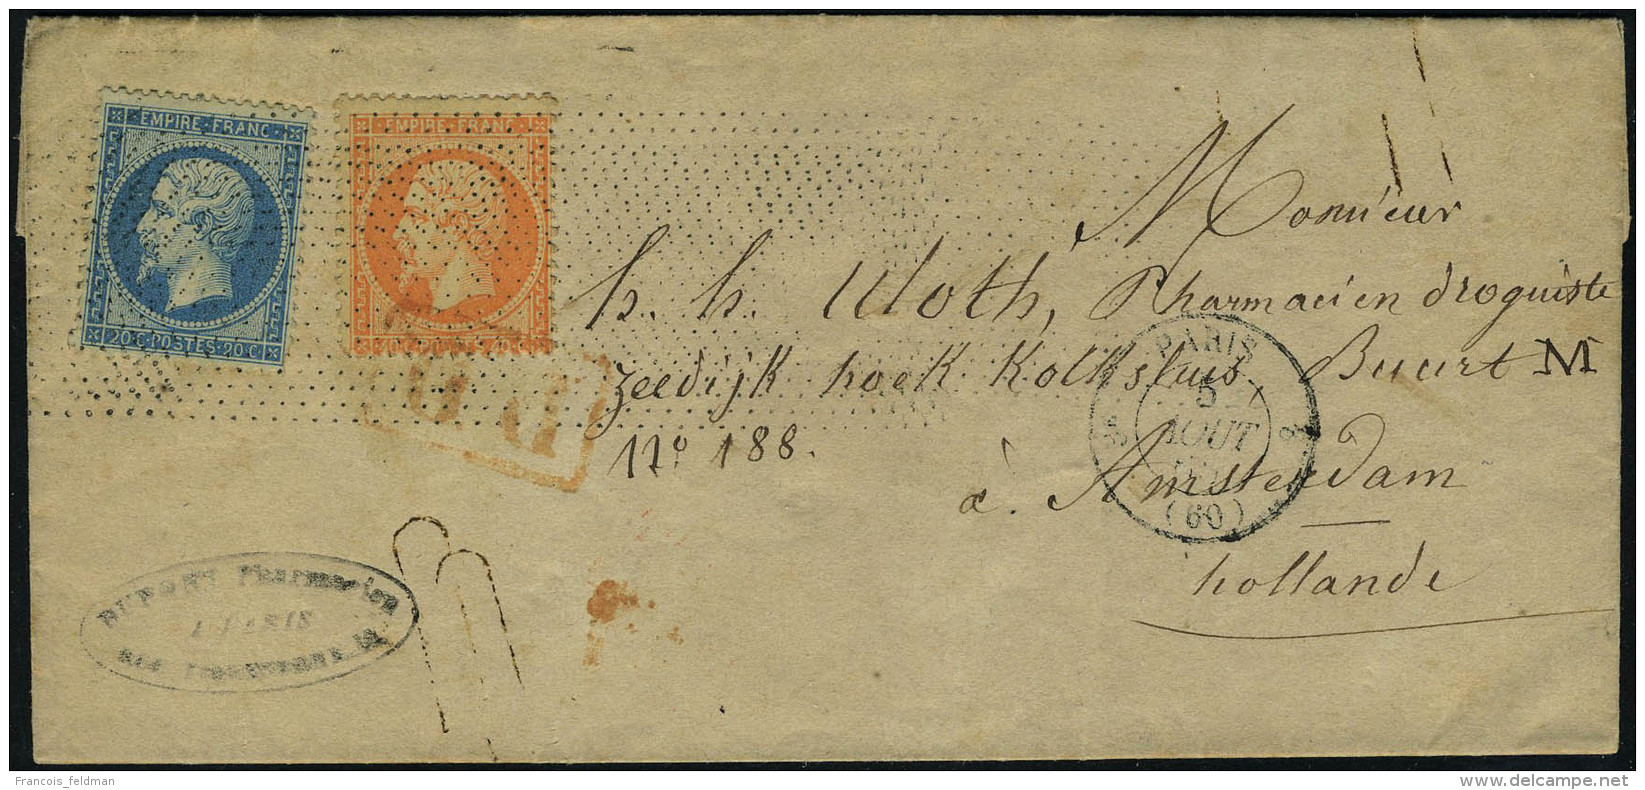 EMPIRE FRANC
20 C POSTES 20 C
EMPIRE FRANC
40 C POSTES 40 C
Monsieur
h. h. Uloth, Pharmacien droguiste
zeedijk hoek Kolksluis Buurt M
N° 188.
à Amsterdam
hollande
PARIS
5
AOUT
(60)
P.D.
DUPONT Pharmacien
A PARIS
Francois_feldman
delcampe.net